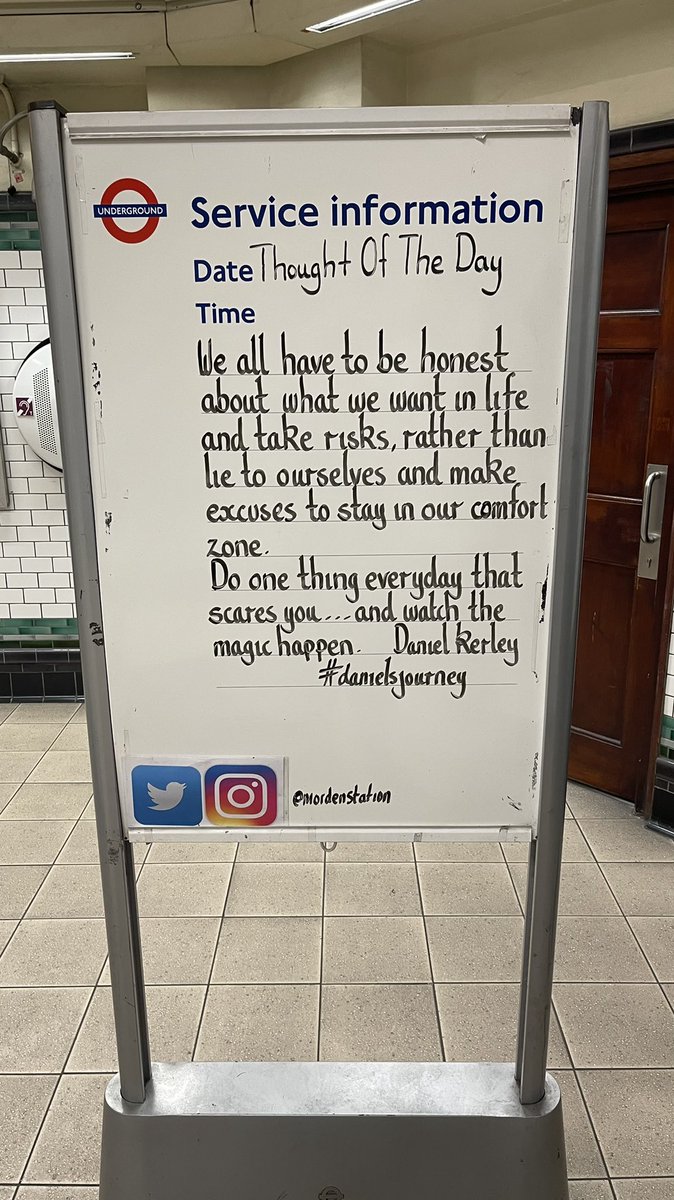 UNDERGROUND
Service information
Date Thought Of The Day
Time
We all have to be honest
about what we want in life
and take risks, rather than
lie to ourselves and make
excuses to stay in our comfort
zone.
Do one thing everyday that
scares you....and watch the
magic happen. Daniel Kerley
#danielsjourney
@mordenstation